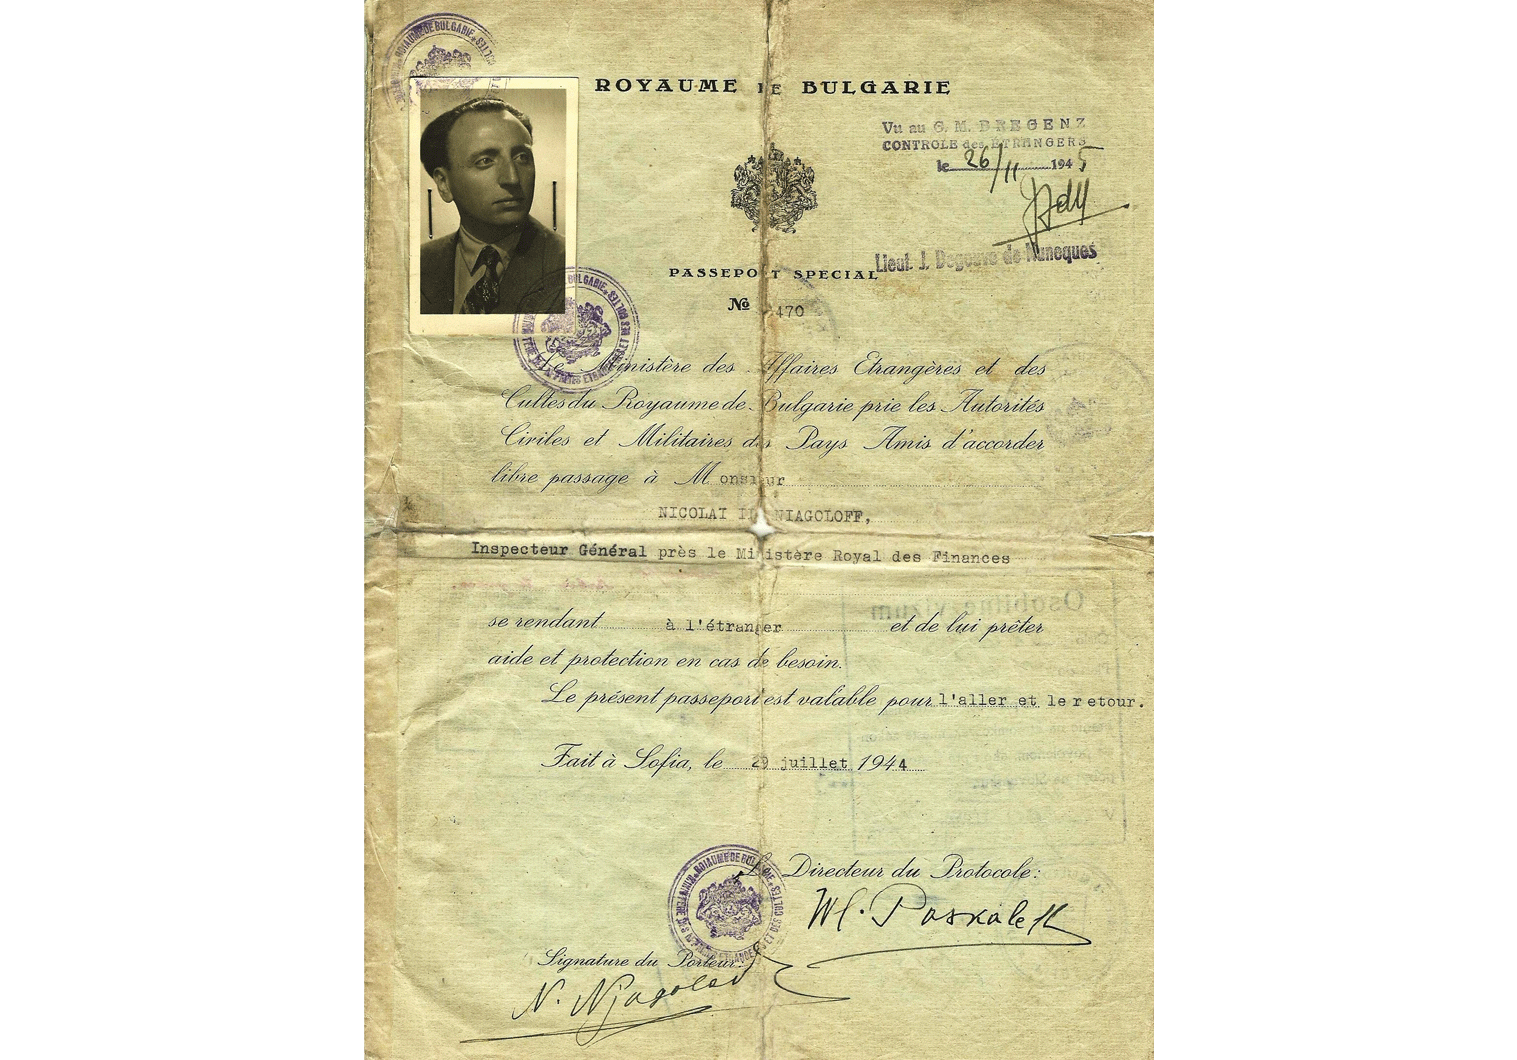 ROYAUME DE BULGARIE
Vu au G. M. BREGENZ
CONTROLE des ÉTRANGERS
le 26/11 1945
Lieut. J. de
PASSEPORT SPECIAL
No 470
Le Ministère des Affaires Etrangères et des
Cultes du Royaume de Bulgarie prie les Autorités
Civiles et Militaires des Pays Amis d'accorder
libre passage à Monsieur
NICOLAÏ NIAGOLOFF,
Inspecteur Général près le Ministère Royal des Finances
se rendant à l'étranger et de lui prêter
aide et protection en cas de besoin.
Le présent passeport est valable pour l'aller et le retour.
Fait à Sofia, le 29 juillet 1944
Le Directeur du Protocole:
Wl. Paskaleff
Signature du Porteur:
N. Njagoloff
Osobitné vízum